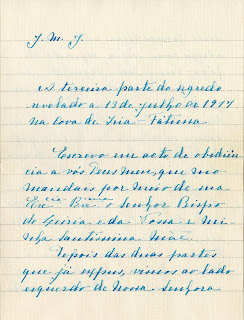 J. M. J.
A terceira parte do segredo
revelado a 13 de Julho de 1917
na Cova de Iria-Fátima
Escrevo em acto de obediên
cia a vós Deus meu, que mo
mandais por meio de sua
Ex.cia Rev.ma o Senhor Bispo
de Leiria e da Vossa e mi
nha Santíssima Mãe.
Depois das duas partes
que já expus, vimos ao lado
esquerdo de Nossa Senhora